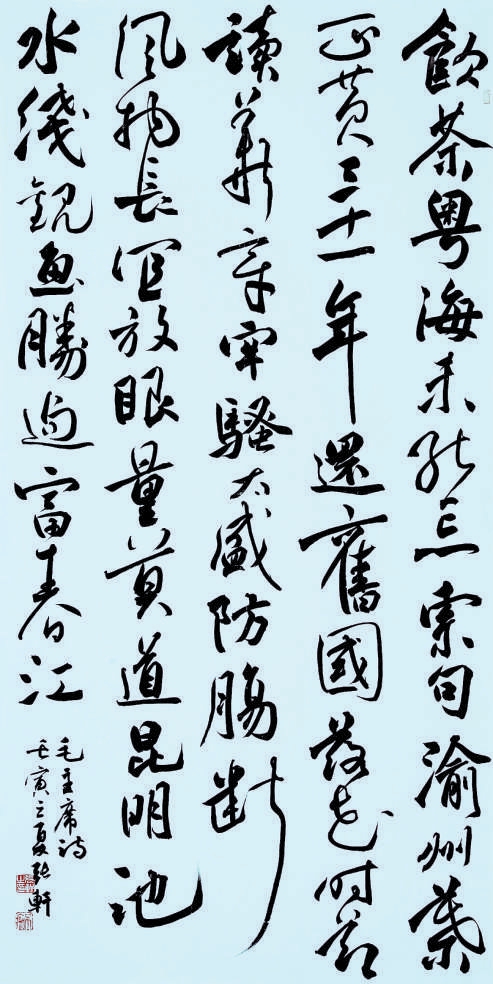 飲茶粤海未能忘索句渝州葉
正黄三十一年還舊國落花时節
讀華章牢騷太盛防腸斷
風物長宜放眼量莫道昆明池
水淺觀魚勝過富春江
毛主席詩
壬寅之夏張軒